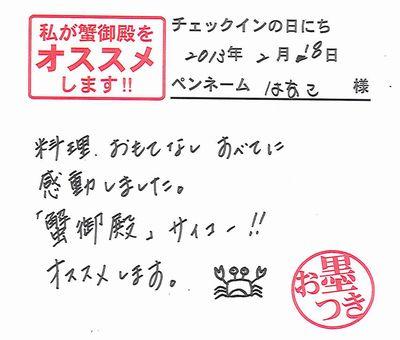 私が蟹御殿を
オススメ
します!!
チェックインの日にち
2013年 2月 18日
ペンネーム はあこ 様
料理、おもてなし すべてに
感動しました。
「蟹御殿」サイコー!!
オススメします。
お墨つき